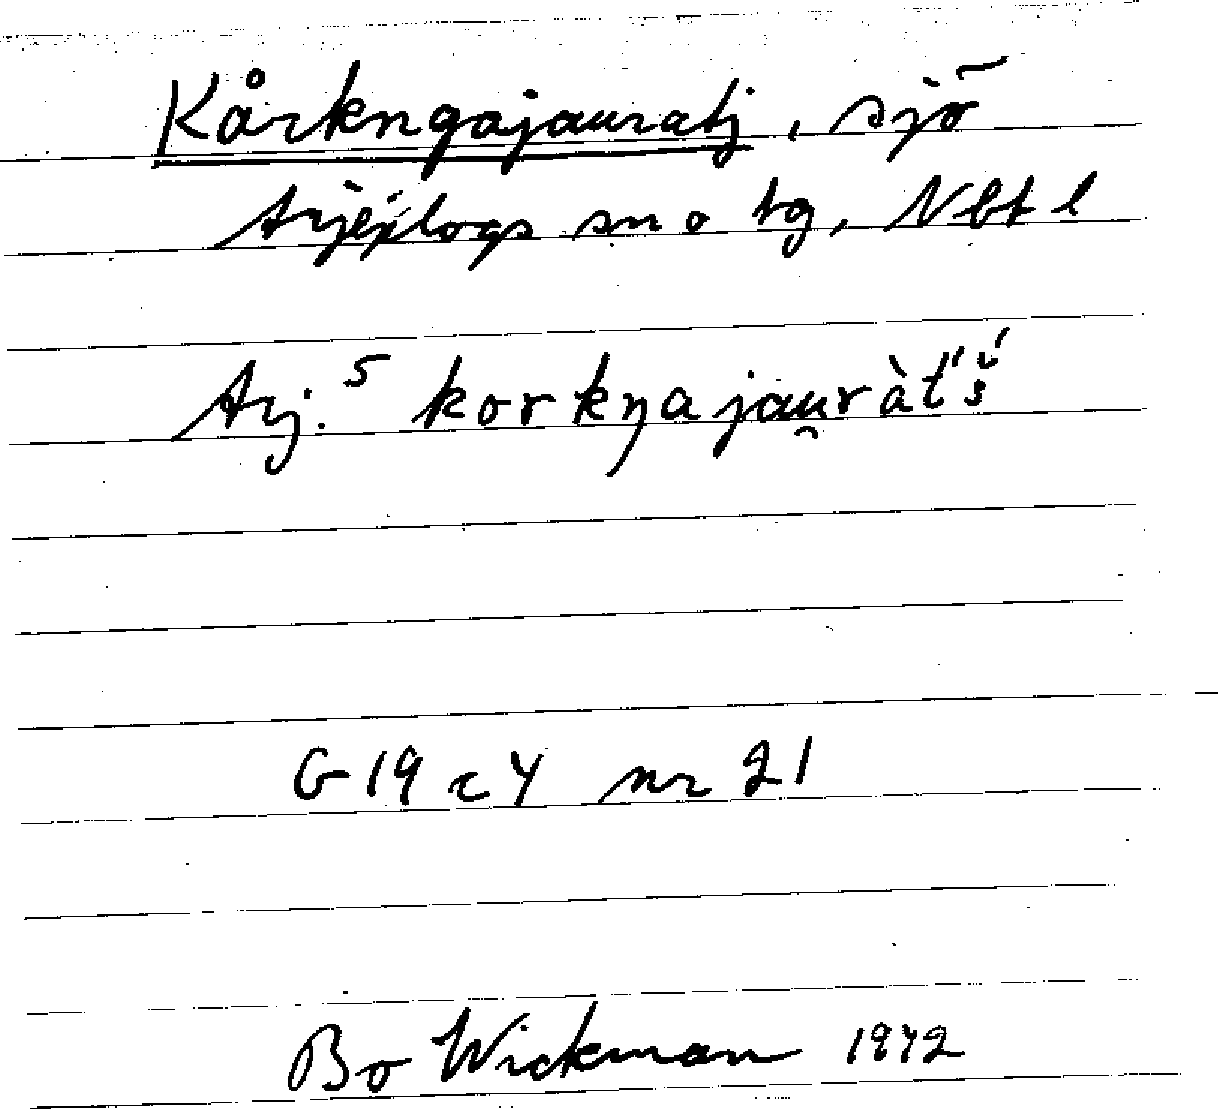 Kårkngajauratj, sjö
Arjeplogs sn o tg, Nbt l
Arj.⁵ korkŋajau̯ràt́'š́
G 19 c 4 nr 21
Bo Wickman 1972